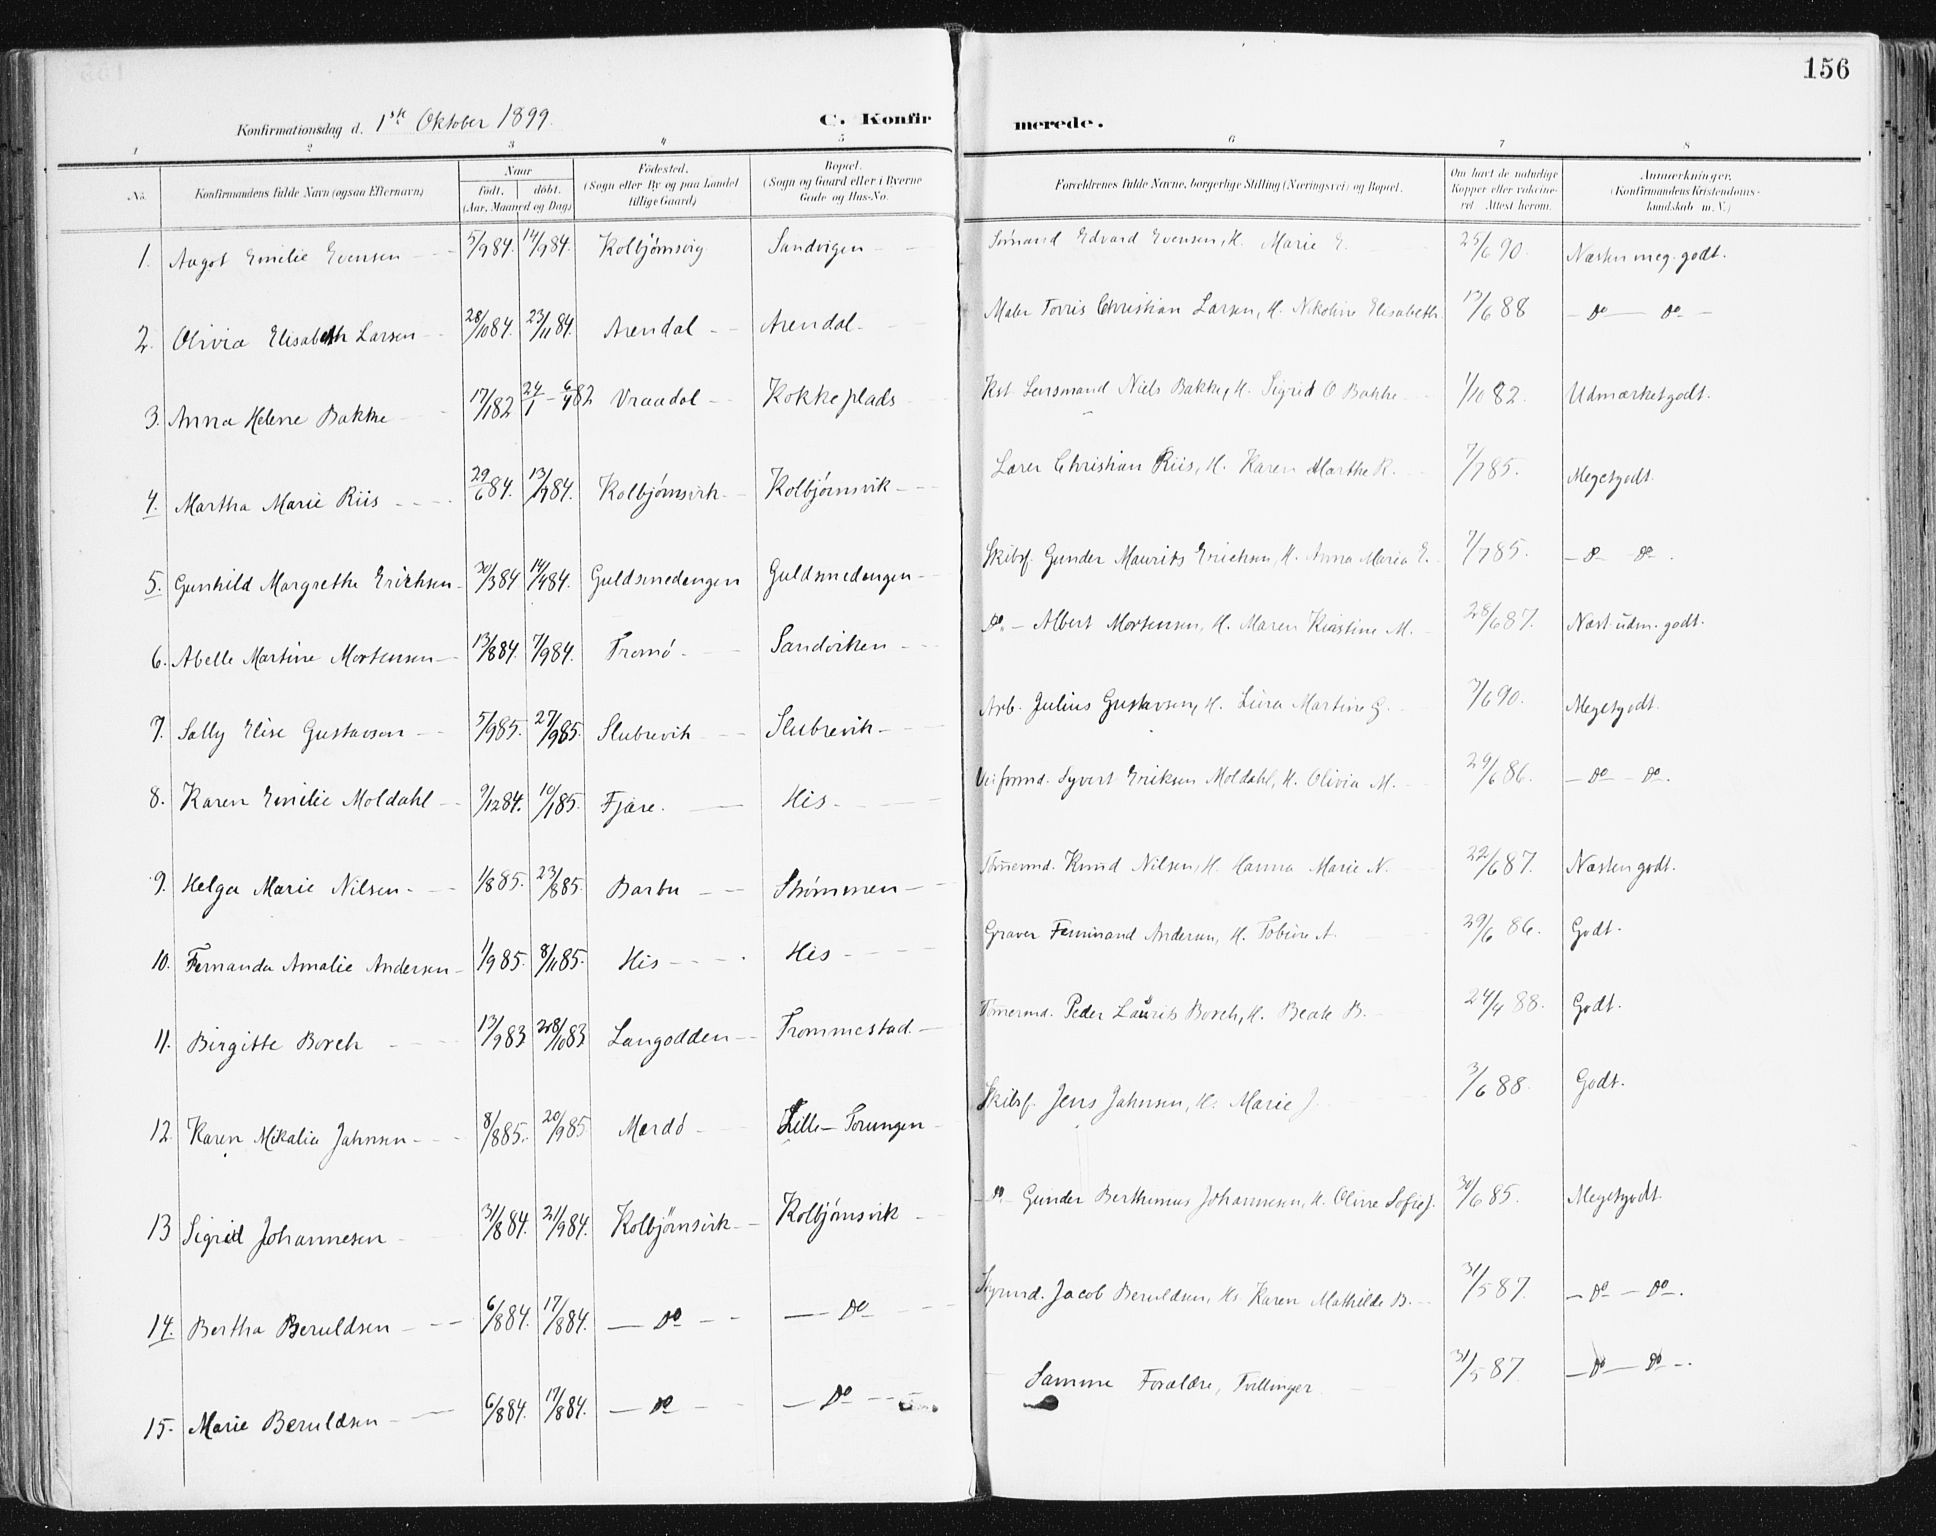 156
Konfirmationsdag d. 1ste Oktober 1899. C. Konfirmerede.
1 2 3 4 5 6 7 8
No. Konfirmandens fulde Navn (ogsaa Efternavn) Naar født. døbt. (Aar, Maaned og Dag) Fødested. (Sogn eller By og paa Landet tillige Gaard) Bopæl. (Sogn og Gaard eller i Byerne Gade og Hus-No. Forældrenes fulde Navne, borgerlige Stilling (Næringsvei) og Bopæl. Om havt de naturlige Kopper eller vaccineret. Attest herom. Anmærkninger. (Konfirmandens Kristendomskundskab m. V.)
1. Aagot Emilie Evensen 5/9 84. 14/9 84. Kolbjørnsvig Sandvigen Sømand Edvard Evensen, H. Marie E. 25/6 90. Næsten meg. godt.
2. Olivia Elisabeth Larsen 28/10 84. 23/11 84. Arendal Arendal. Maler Torris Christian Larsen, H. Nikoline Elisabeth. 13/6 88 – Do — Do –
3. Anna Helene Bakke 17/1 82 24/1 – 6/4 82 Vraadal Kokkeplads Kst. Lensmand Niels Bakke, H. Sigrid O Bakke 1/10 82. Udmærket godt.
4. Martha Marie Riis 29/6 84. 13/7 84. Kolbjørnsvik Kolbjørnsvik Lærer Christian Riis, H. Karen Marthe R. 7/7 85. Meget godt.
5. Gunhild Margrethe Erichsen 30/3 84 14/4 84. Guldsmedengen Guldsmedengen Skibsf. Gunder Maurits Erichsen, H. Anna Maria E. 7/7 85. – Do – Do .
6. Abelle Martine Mortensen 13/8 84. 7/9 84. Tromø Sandviken Do. – Albert Mortensen, H. Maren Kirstine M. 28/6 87. Næst. udm. godt.
7. Sally Elise Gustavsen 5/9 85. 27/9 85. Slubrevik Slubrevik Arb. Julius Gustavsen, H. Lina Martine G. 3/6 90. Meget godt.
8. Karen Emilie Moldahl 9/12 84. 10/1 85. Fjære. His Veiformd. Syvert Eriksen Moldahl, H. Olivia M. 29/6 86. – Do – Do.
9. Helga Marie Nilsen 1/8 85. 23/8 85. Barbu Strømmen Tømermd. Knud Nilsen, H. Hanna Marie N. 22/6 87. Næsten godt.
10. Fernanda Amalie Andersen 1/9 85. 8/11 85. His His Graver Ferninand Andersen, H. Tobine A. 29/6 86. Godt.
11. Birgitte Borch 13/9 83 28/10 83 Langodden Trommestad Tømermd. Peder Laurits Borch, H. Beate B. 24/4 88. Godt.
12. Karen Mikalia Jahnsen 8/8 85. 20/9 85 Mærdø Lille–Torungen Skibsf. Jens Jahnsen, H. Marie J. 3/6 88. Godt.
13 Sigrid Johannesen 31/8 84. 21/9 84. Kolbjørnsvik Kolbjørnsvik – Do – Gunder Berthinius Johannesen, H. Olivie Sofie J. 30/6 85. Meget godt.
14. Bertha Beruldsen 6/8 84. 17/8 84. — Do — Do Styrmd. Jacob Beruldsen, Hs Karen Mathilde B. 31/5 87. – Do – Do.
15. Marie Beruldsen 6/8 84. 17/8 84. — Do — Do Samme Forældre, Tvillinger 31/5 87. – Do – Do –.